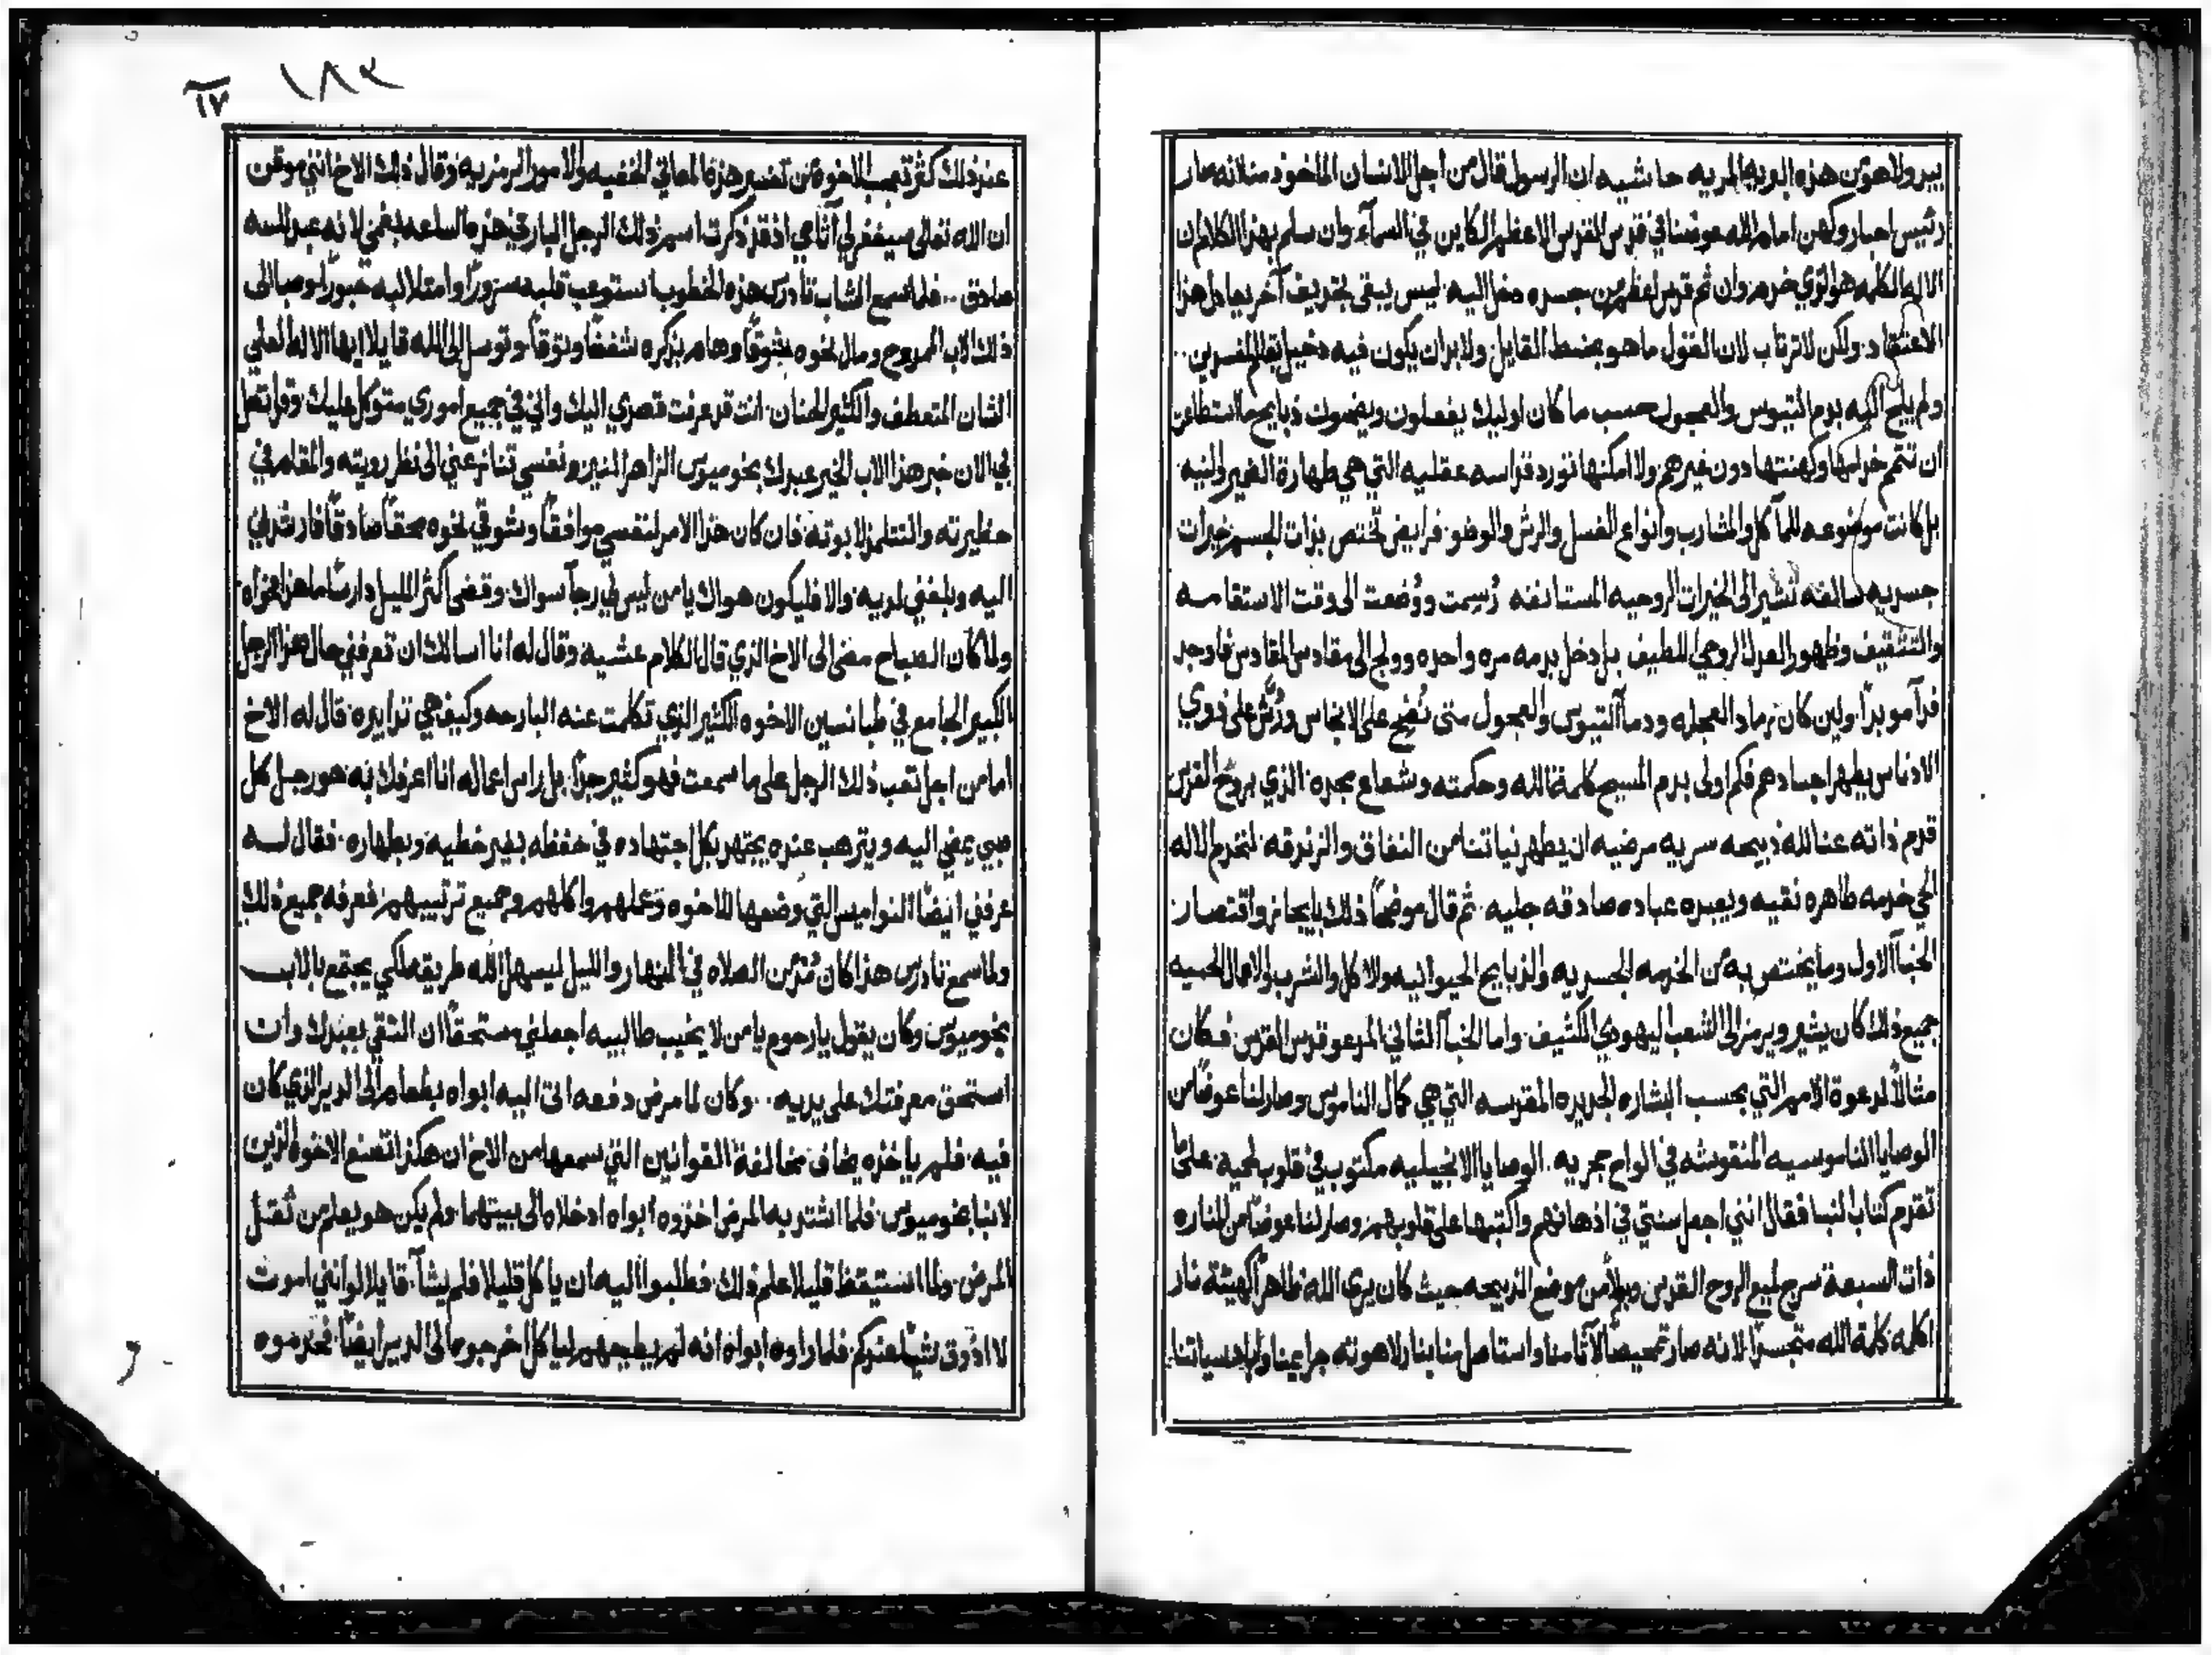 بيد ولا هو من هذه البريه حاشيه ان الرسول قال من اجل الانسان الماخوذ منا لانه صار
رئيس احبار وكهن امام الله عوضنا في قدس القدس الاعظم الكاين في السماء وان سلم بهذا الكلام ان
الاله الكلمه هو الذي خدم وان ثم قدس اعظم من جسده دخل اليه ليس يبقى تجديف آخر يعادل هذا
الاعتقاد ولكن لا ترتاب لان القول ما هو بضبط القايل ولا بد ان يكون فيه دخيل
ولم يلج اليه بدم التيوس والعجول حسب ما كان اوليك يفعلون ويضحون ذبايح ما استطاعن
ان تتمم خدامها وكهنتها دون غيرهم ولا امكنها تورد قداسه عقليه التي هي طهارة الضمير والنيه
بل كانت موضوعه للمآكل والمشارب وانواع الغسل والرش والوضو فرايض تختص بذات الجسم خيرات
جسديه سالفه تشير الى الخيرات الروحيه المستانفه رُسمت ووُضعت الى وقت الاستقامه
والتثقيف وظهور العدل الروحي اللطيف بل دخل بدمه مره واحده وولج الى مقادس المقادس فاوجد
فدآ موبداً ولين كان رماد العجله ودمآ التيوس والعجول متى نُضح على الانجاس ورُش على ذوي
الادناس يطهر اجسادهم فكم اولى بدم المسيح كلمة الله وحكمته وشعاع مجده الذي بروح القدس
قدم ذاته عنا لله ذبيحه سريه مرضيه ان يطهر نياتنا من النفاق والزندقه لنخدم الاله
الحي خدمه طاهره نقيه ونعبده عباده صادقه جليه ثم قال موضحاً ذلك بايجاز واقتصار
الخبآ الاول وما يختص به من الخدمه الجسديه والذبايح الحيوانيه والاكل والشرب والاعمال الجسميه
جميع ذلك كان يشير ويرمز الى الشعب اليهودي الكثيف واما الخبآ الثاني المدعو قدس القدس فكان
مثالاً لدعوة الامم التي بحسب البشاره الجديده المقدسه التي هي كمال الناموس وصار لنا عوضاً من
الوصايا الناموسيه المنقوشه في الواح حجريه الوصايا الانجيليه مكتوب في قلوب لحميه على ما
تقدم كتاب فقال انني اجعل سنتي في اذهانهم واكتبها على قلوبهم وصار لنا عوضاً من المناره
ذات السبعة سرج الروح القدس وبدلاً من موضع الذبيحه حيث كان يرى الله ظاهراً كهيئة نار
اكله كلمة الله متجسداً لانه صار تمحيصاً لآثامنا واستاصل منا بنار لاهوته جرايمنا
١٨٢
١٧
عند ذلك كثر تعجب الاخوه من تفسير هذه المعاني الخفيه والامور الرمزيه وقال ذلك الاخ انني موقن
ان الله تعالى سيغفر لي آثامي اذ قد ذكرت اسم ذلك الرجل البار في هذه الساعه بفمي لانه عبد لله
صادق فلما سمع الشاب تادرس هذه الخطوب استوعب قلبه سروراً وامتلا لبه حبوراً وصبا الى
ذلك الاب الممدوح ومال نحوه بشوقاً وهام بذكره شغفاً وتوقاً وتوسل الى الله قايلا ايها الاله العلي
الشان المتعطف والكثير الحنان انت قد عرفت قصدي اليك واني في جميع اموري متوكل عليك وقد اتصل
بي الان خبر هذا الاب الخير عبدك بخوميوس الزاهر المنير ونفسي تنازعني الى نظر رويته والمقام في
حظيرته والتتلمذ لابوته فان كان هذا الامر لنفسي موافقاً وشوقي نحوه محقاً صادقاً فارشدني
اليه وبلغني لديه والا فليكون هواك يا من ليس لي رجآ سواك وقضى اكثر الليل دارساً ما هذا فحواه
ولما كان الصباح مضى الى الاخ الذي قال الكلام عشيه وقال له انا اسالك ان تعرفني حال هذا الرجل
الكبير الجامع في طبانسين الاخوه الكثير الذي تكلمت عنه البارحه وكيف هي تدابيره قال له الاخ
اما من اجل تعب ذلك الرجل على ما سمعت فهو كثير جداً بل راس اعماله انا اعرفك به هو رجل كل
صبي يمضي اليه ويترهب عنده يجتهد بكل اجتهاده في حفظه بغير خطيه وبطهاره فقال له
عرفني ايضاً النواميس التي وضعها للاخوه وعملهم واكلهم وجميع ترتيبهم فعرفه جميع ذلك
ولما سمع تادرس هذا كان مُدمن الصلاه في النهار والليل ليسهل الله طريقه لكي يجتمع بالاب
بخوميوس وكان يقول يا رحوم يا من لا يخيب طالبيه اجعلني مستحقاً ان التقي بعبدك وان
استحق معرفتك على يديه وكان لما مرض دفعه اتى اليه ابواه بطعام الى الدير الذي كان
فيه فلم ياخذه يخاف مخالفة القوانين التي سمعها من الاخ ان هكذا تصنع الاخوه الذين
لانبا بخوميوس فلما اشتد به المرض اخذوه ابواه ادخلاه الى بيتهما ولم يكن هو يعلم من ثُقل
المرض ولما استيقظ قليلا علم ذلك فطلبوا اليه ان ياكل قليلا فلم يشآ قايلا لو انني اموت
لا اذوق شياً عندكم فلما راوه ابواه انه لم يطيعهم لياكل اخرجوه الى الدير ايضاً فخدموه